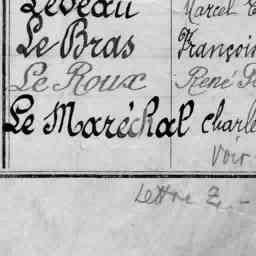 Leveau Marcel
Le Bras François
Le Roux René
Le Maréchal Charle
Voir
Lettre Z